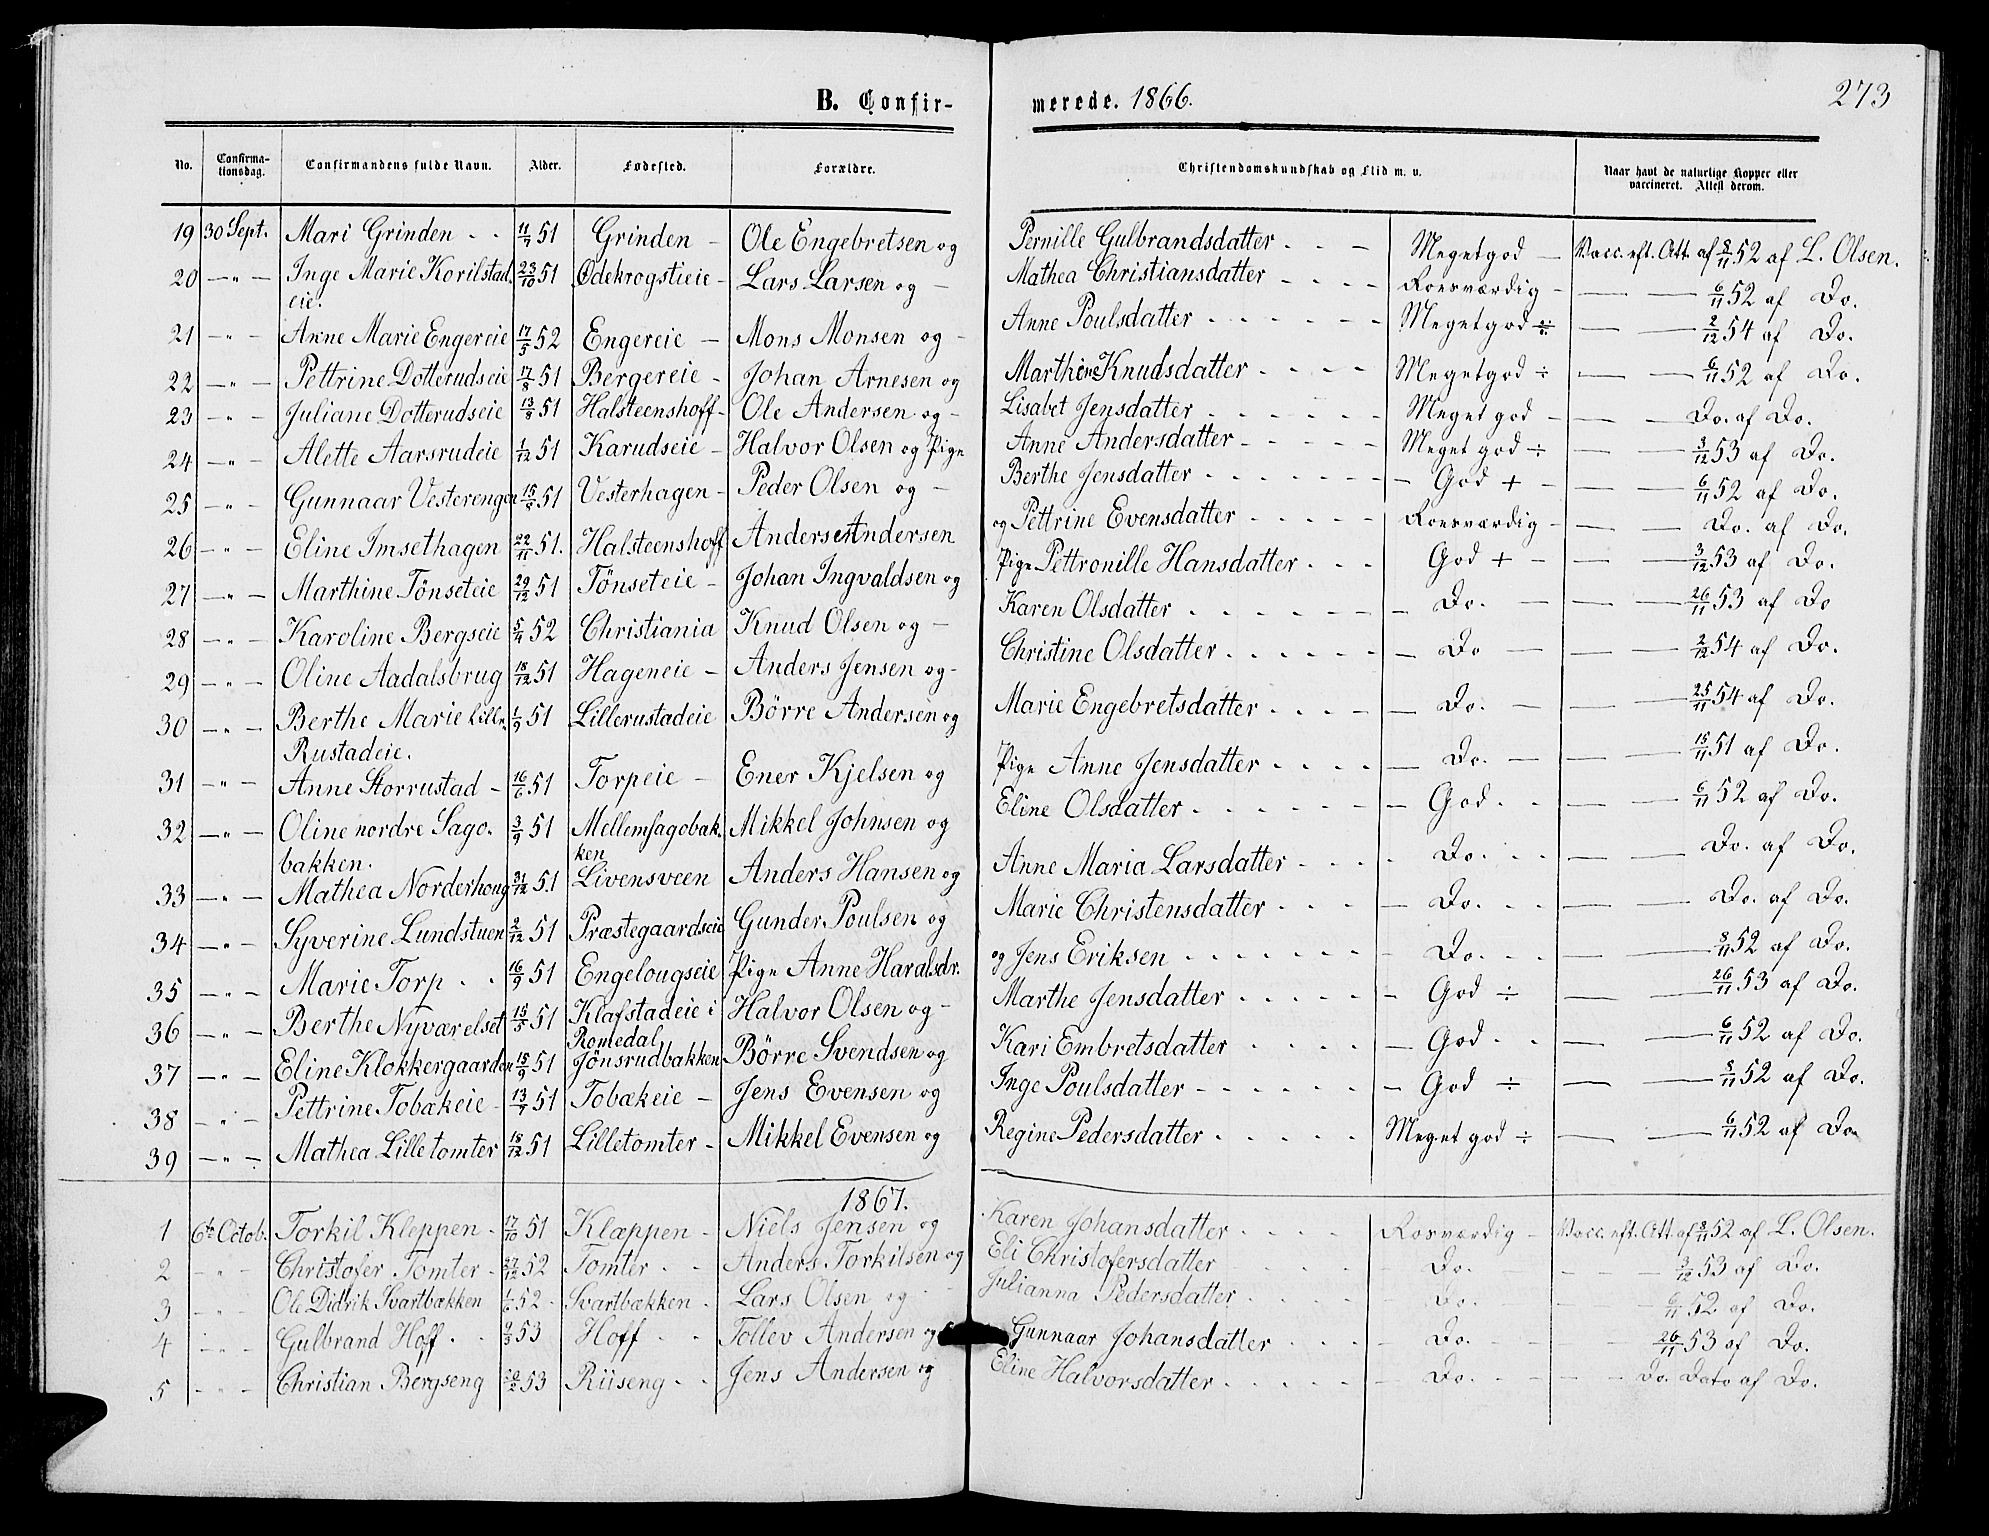 B. Confir- merede. 1866. 273
No. Confirma-tionsdag. Confirmandens fulde Navn. Alder. Fødested. Forældre. Christendomskundskab og Flid m. v. Naar havt de naturlige Kopper eller vaccineret. Attest derom.
19 30 Sept. Mari Grinden - - 11/9 51 Grinden - Ole Engebretsen og Pernille Gulbrandsdatter - - - Meget god - Vacc. eft. Att. af 8/11 52 af L. Olsen.
20 - " - Inge Marie Korilstad 23/10 51 Ødekrogstieie - Lars Larsen og - Mathea Christiansdatter - - - - Roesværdig - — — 6/11 52 af Do.
eie.
21 - " - Anne Marie Engereie 17/5 52 Engereie - Mons Monsen og - Anne Poulsdatter - - - - - - Meget god ÷ — — 2/12 54 af Do.
22 - " - Pettrine Dotterudseie 17/8 51 Bergereie - Johan Arnesen og Marthine Knudsdatter - - - - Meget god ÷ — — 6/11 52 af Do.
23 - " - Juliane Dotterudseie 13/8 51 Halsteenshoff - Ole Andersen og - Lisabet Jensdatter - - - - - - Meget god - — — Do. af Do.
24 - " - Alette Aarsrudeie 1/12 51 Karudseie - Halvor Olsen og Pige Anne Andersdatter - - - - - Meget god ÷ — — 3/12 53 af Do.
25 - " - Gunnaar Vesterengen 15/8 51 Vesterhagen - Peder Olsen og - Berthe Jensdatter - - - - - - God + - — — 6/11 52 af Do.
26 - " - Eline Imsethagen 22/11 51. Halsteenshoff Anders Andersen og Pettrine Evensdatter - - - - - Roesværdig - — — Do. af Do.
27 - " - Marthine Tönseteie 29/12 51 Tönseteie - Johan Ingvaldsen og Pige Pettronille Hansdatter - - - God + - — 3/12 53 af Do.
28 - " - Karoline Bergseie 5/4 52 Christiania Knud Olsen og - Karen Olsdatter - - - - - - - Do. — — — 26/11 53 af Do
29 - " - Oline Aadalsbrug 18/12 51 Hageneie - Anders Jensen og - Christine Olsdatter - - - - - - - Do — — — 2/12 54 af Do.
30 - " - Berthe Marie Lille 1/9 51 Lillerustadeie Börre Andersen og Marie Engebretsdatter - - - - - Do. - — — 25/11 54 af Do.
Rustadeie.
31 - " - Anne Storrustad - 16/6 51 Torpeie - Ener Kjelsen og Pige Anne Jensdatter - - - - - Do. — — — 15/11 51 af Do.
32 - " - Oline nordre Sago- 3/9 51 Mellemsagobak- Mikkel Johnsen og Eline Olsdatter - - - - - - - God - - — — 6/11 52 af Do.
bakken. ken
33 - " - Mathea Norderhoug 31/12 51 Livensveen Anders Hansen og Anne Maria Larsdatter - - - - Do. - - — — Do. af Do.
34 - " - Syverine Lundstuen 2/12 51 Præstegaardseie Gunder Poulsen og Marie Christensdatter - - - - - Do. - - — — Do. af Do.
35 - " - Marie Torp - - 16/9 51 Engelougseie Pige Anne Haralsdr. og Jens Eriksen - - - - - - - - Do. - - — 8/11 52 af Do.
36 - " - Berthe Nyværelset 15/5 51 Klafstadeie i Halvor Olsen og - Marthe Jensdatter - - - - - - God ÷ — — 26/11 53 af Do.
Romedal
37 - " - Eline Klokkergaarden 15/9 51 Jönsrudbakken Börre Svendsen og Kari Embretsdatter - - - - - God - - — — 6/11 52 af Do.
38 - " - Pettrine Tobækeie - 13/7 51 Tobækeie - Jens Evensen og Inge Poulsdatter - - - - - - - God ÷ — — 8/11 52 af Do.
39 - " - Mathea Lilletomter 18/12 51 Lilletomter - Mikkel Evensen og Regine Pedersdatter - - - - - Meget god ÷ — — 6/11 52 af Do
1867.
1 6te Octob. Torkil Kleppen - 17/10 51 Klæppen - Niels Jensen og Karen Johansdatter - - - - Rosværdig - Vacc. eft. Att. af 8/11 52 af L. Olsen.
2 - " - Christofer Tomter - 27/12 52 Tomter - - Anders Torkilsen og Eli Christofersdatter - - - - - Do. - - - 3/12 53 af Do.
3 - " - Ole Didrik Svartbækken 1/6 52 - Svartbækken - Lars Olsen og - Julianna Pedersdatter - - - - - Do. - - - 6/11 52 af Do.
4 - " - Gulbrand Hoff - - 9/3 53 Hoff - - Tollev Andersen og Gunnaar Johansdatter - - - - - Do. - - - 26/11 53 af Do.
5 - " - Christian Bergseng 53 Riiseng - - Jens Andersen og Eline Halvorsdatter - - - - - - Do. - - - Do. Dato af Do.